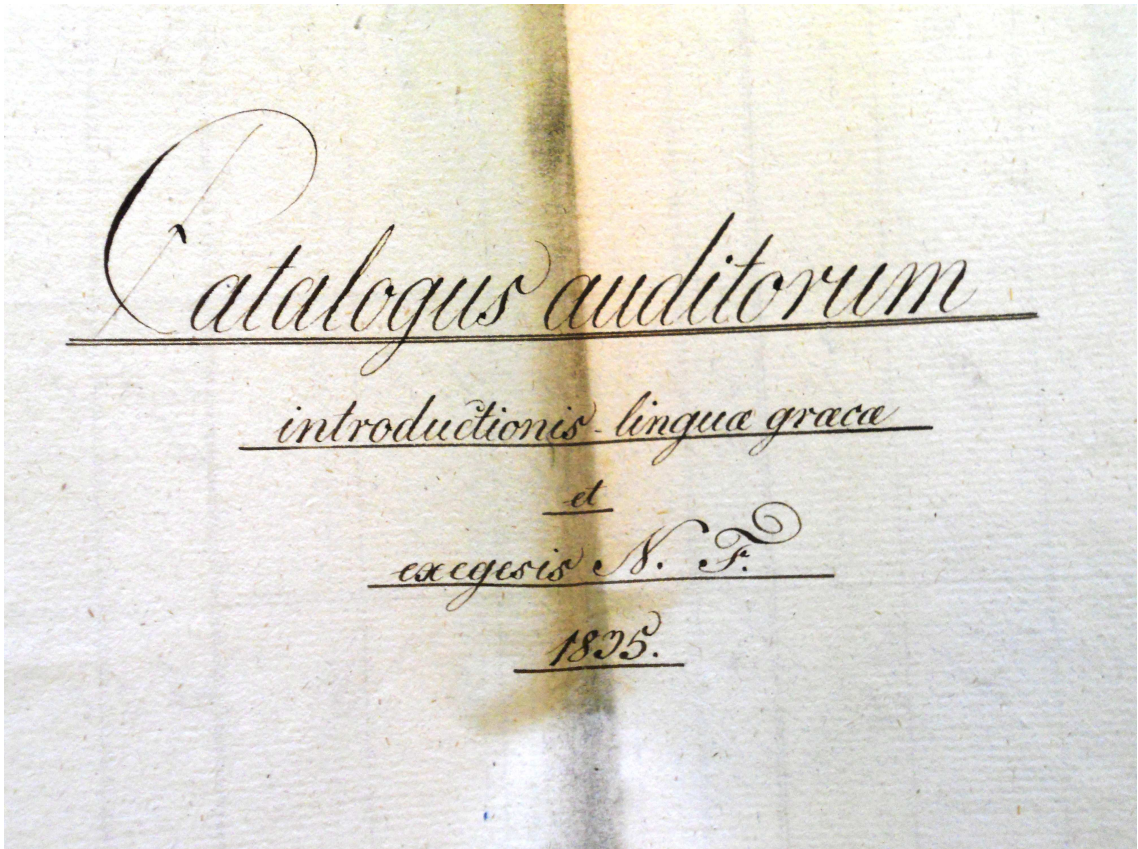 Catalogus auditorum
introductionis linguæ græcæ
et
exegesis N. F.
1835.